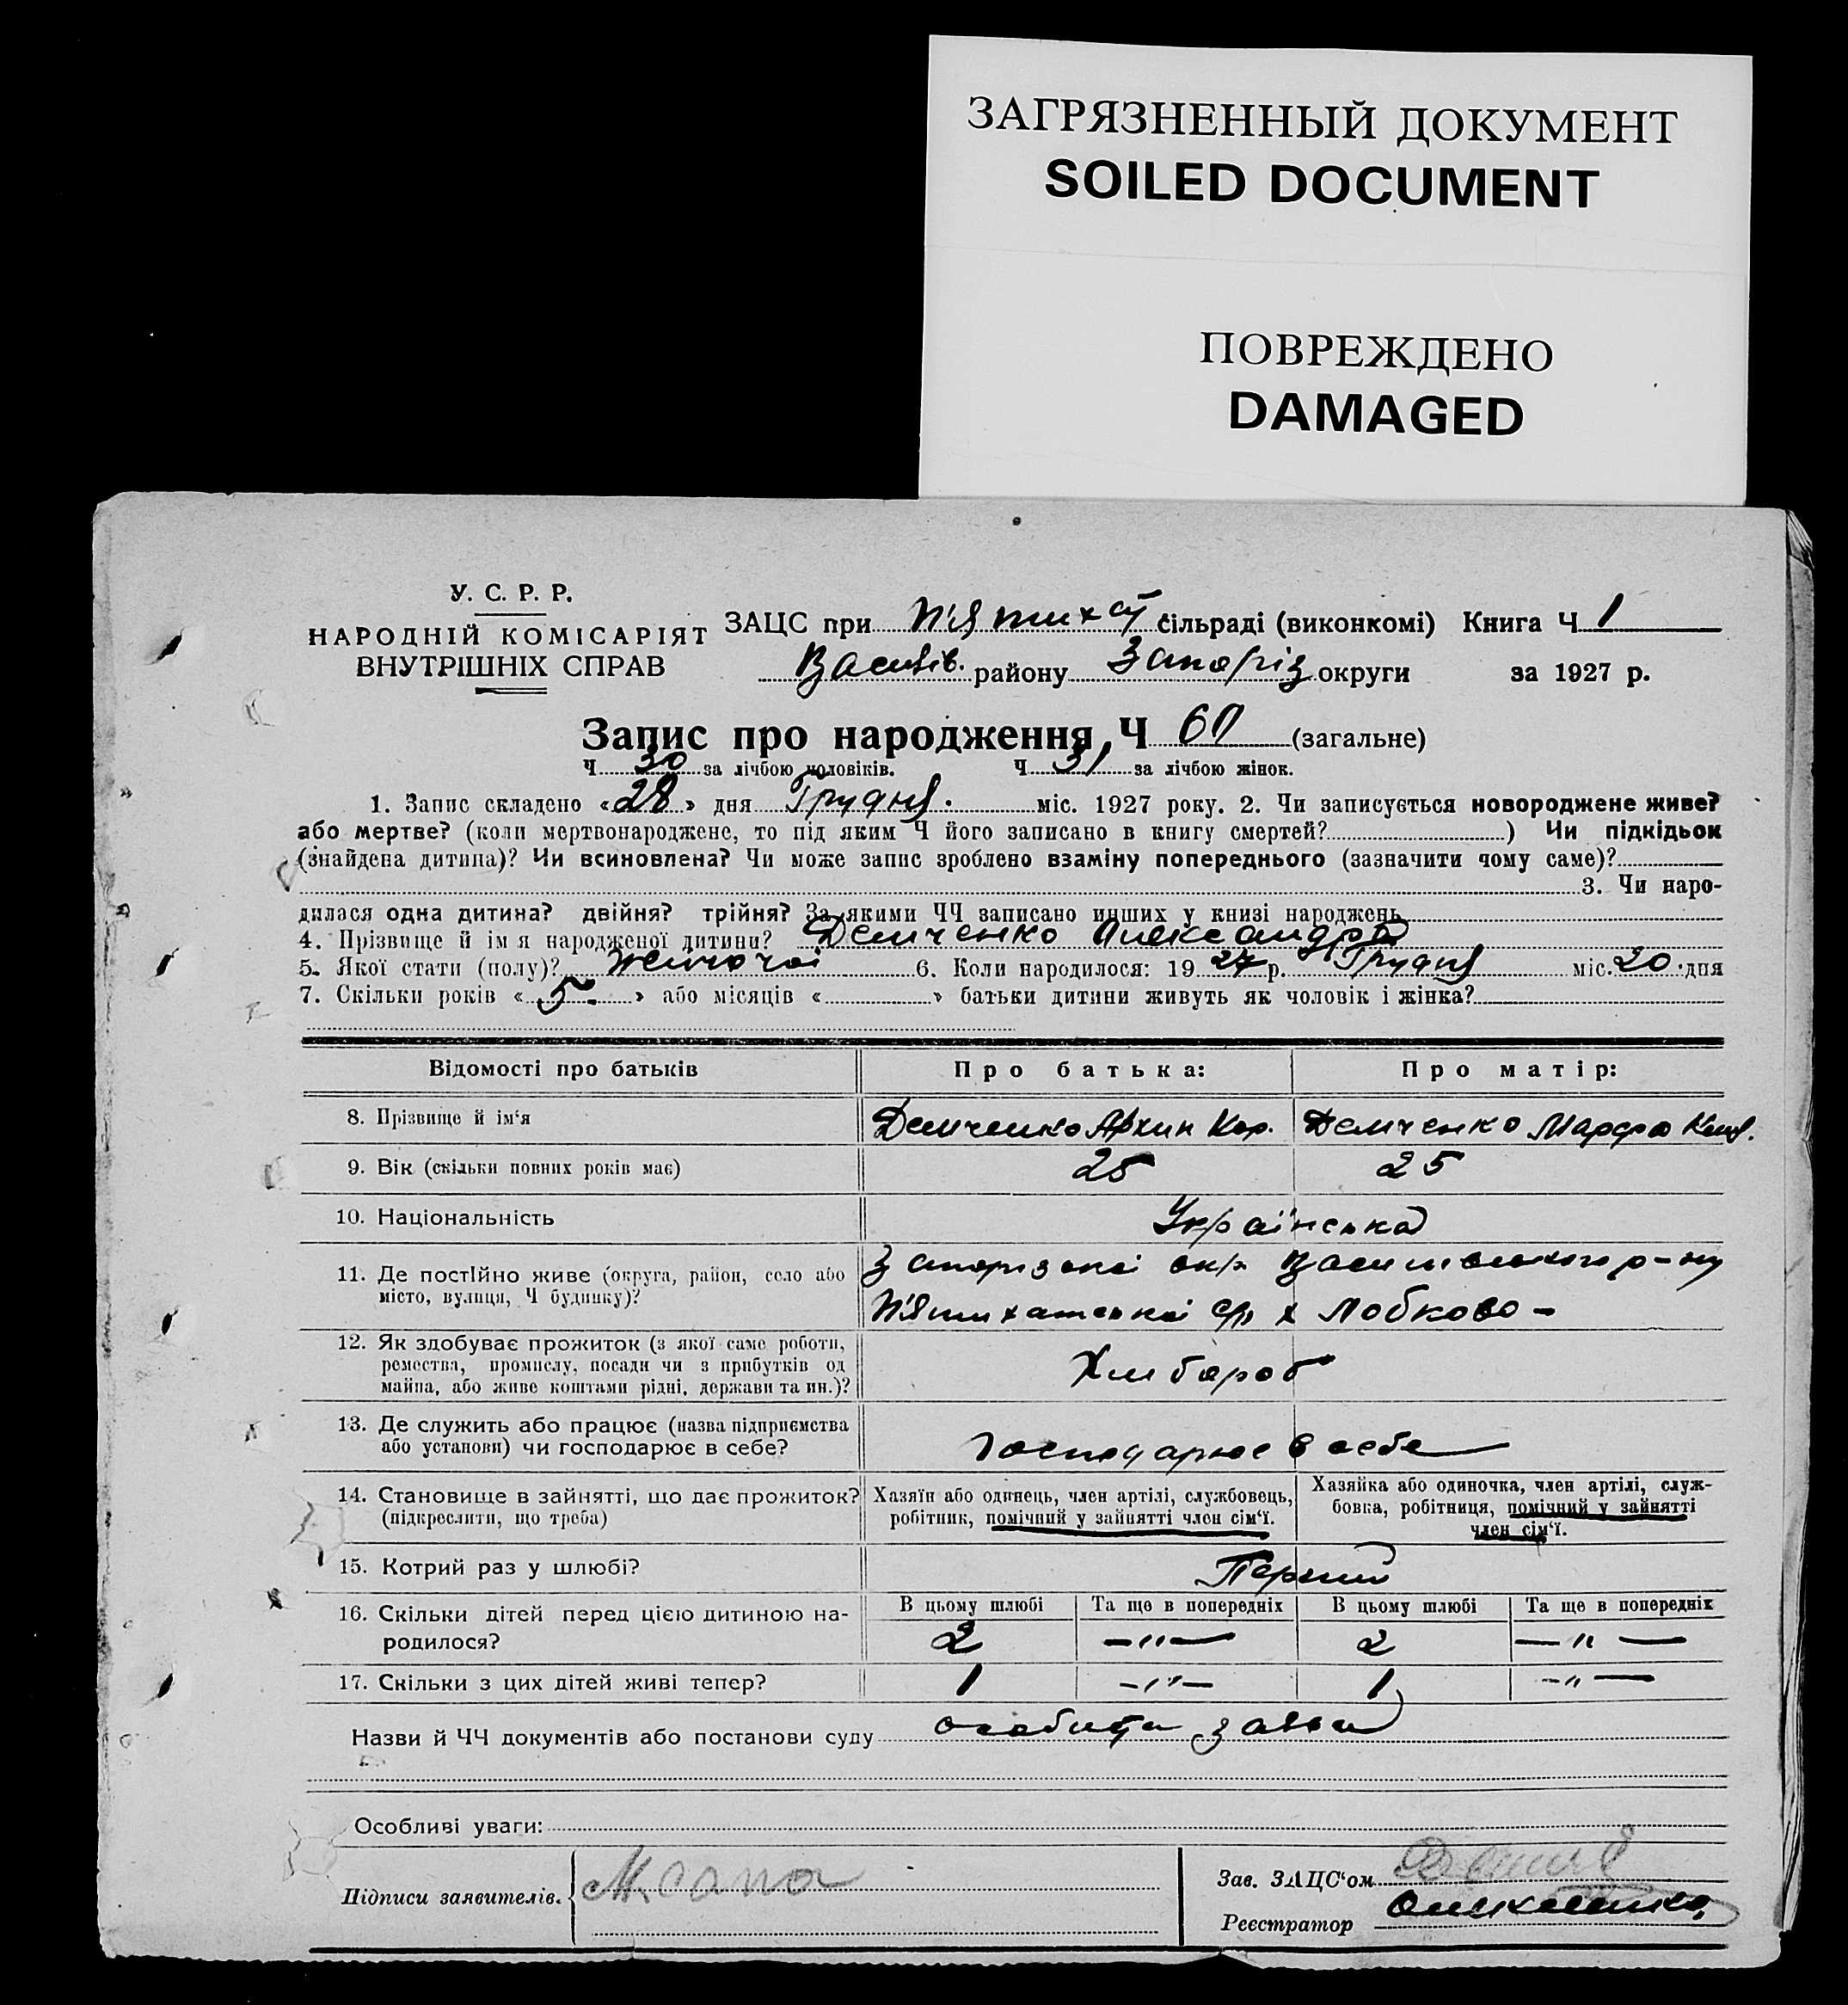 ЗАГРЯЗНЕННЫЙ ДОКУМЕНТ
SOILED DOCUMENT
ПОВРЕЖДЕНО
DAMAGED
У. С. Р. Р.
НАРОДНІЙ КОМІСАРІЯТ
ВНУТРІШНІХ СПРАВ
ЗАЦС при П'ятихат сільраді (виконкомі) Книга Ч 1
Василів. району Запоріз округи за 1927 р.
Запис про народження, Ч (загальне)
Ч 30 за лічбою чоловіків. Ч 31 за лічбою жінок.
1. Запис складено «28» дня Грудня міс. 1927 року. 2. Чи записується новороджене живе?
або мертве? (коли мертвонароджене, то під яким Ч його записано в книгу смертей?) Чи підкідьок
(знайдена дитина)? Чи всиновлена? Чи може запис зроблено взаміну попереднього (зазначити чому саме)?
3. Чи наро-
дилася одна дитина? двійня? трійня? За якими ЧЧ записано инших у книзі народжень
4. Прізвище й ім я народженої дитини? Демченко Александра
5. Якої стати (полу)? жіночої 6. Коли народилося: 1927 р. Грудня міс. 20 дня
7. Скільки років «5» або місяців « » батьки дитини живуть як чоловік і жінка?
Відомості про батьків Про батька: Про матір:
8. Прізвище й ім'я Демченко Архип Кор. Демченко Марфа
9. Вік (скільки повних років має) 25 25
10. Національність Українська
11. Де постійно живе (округа, район, село або Запорізької окр. Василівського р-ну
місто, вулиця, Ч будинку)? П'ятихатської с/р х Лобково -
12. Як здобуває прожиток (з якої саме роботи,
ремества, промислу, посади чи з прибутків од Хлібороб
майна, або живе коштами рідні, держави та ин.)?
13. Де служить або працює (назва підприємства
або установи) чи господарює в себе? господарює в себе
14. Становище в зайнятті, що дає прожиток? Хазяїн або одинець, член артілі, службовець, Хазяйка або одиночка, член артілі, служ-
(підкреслити, що треба) робітник, помічний у зайнятті член сім'ї. бовка, робітниця, помічний у зайнятті
член сім'ї.
15. Котрий раз у шлюбі? Перший
16. Скільки дітей перед цією дитиною на- В цьому шлюбі Та ще в попередніх В цьому шлюбі Та ще в попередніх
родилося? 2 —"— 2 —"—
17. Скільки з цих дітей живі тепер? 1 —"— 1 —"—
Назви й ЧЧ документів або постанови суду особиста заява
Особливі уваги:
Підписи заявителів.
Зав. ЗАЦС'ом
Реєстратор